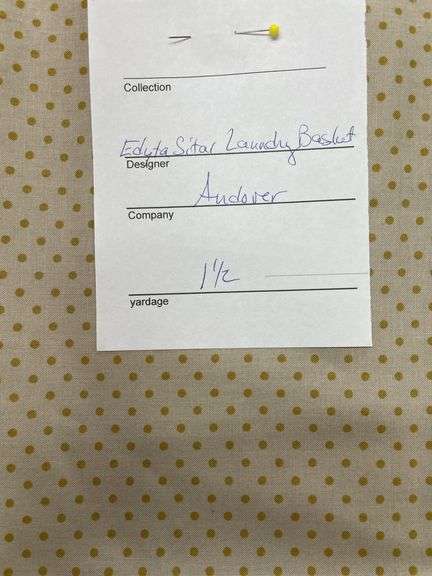 Collection
Edyta Sitar Laundry Basket
Designer
Andover
Company
1 1/2
yardage